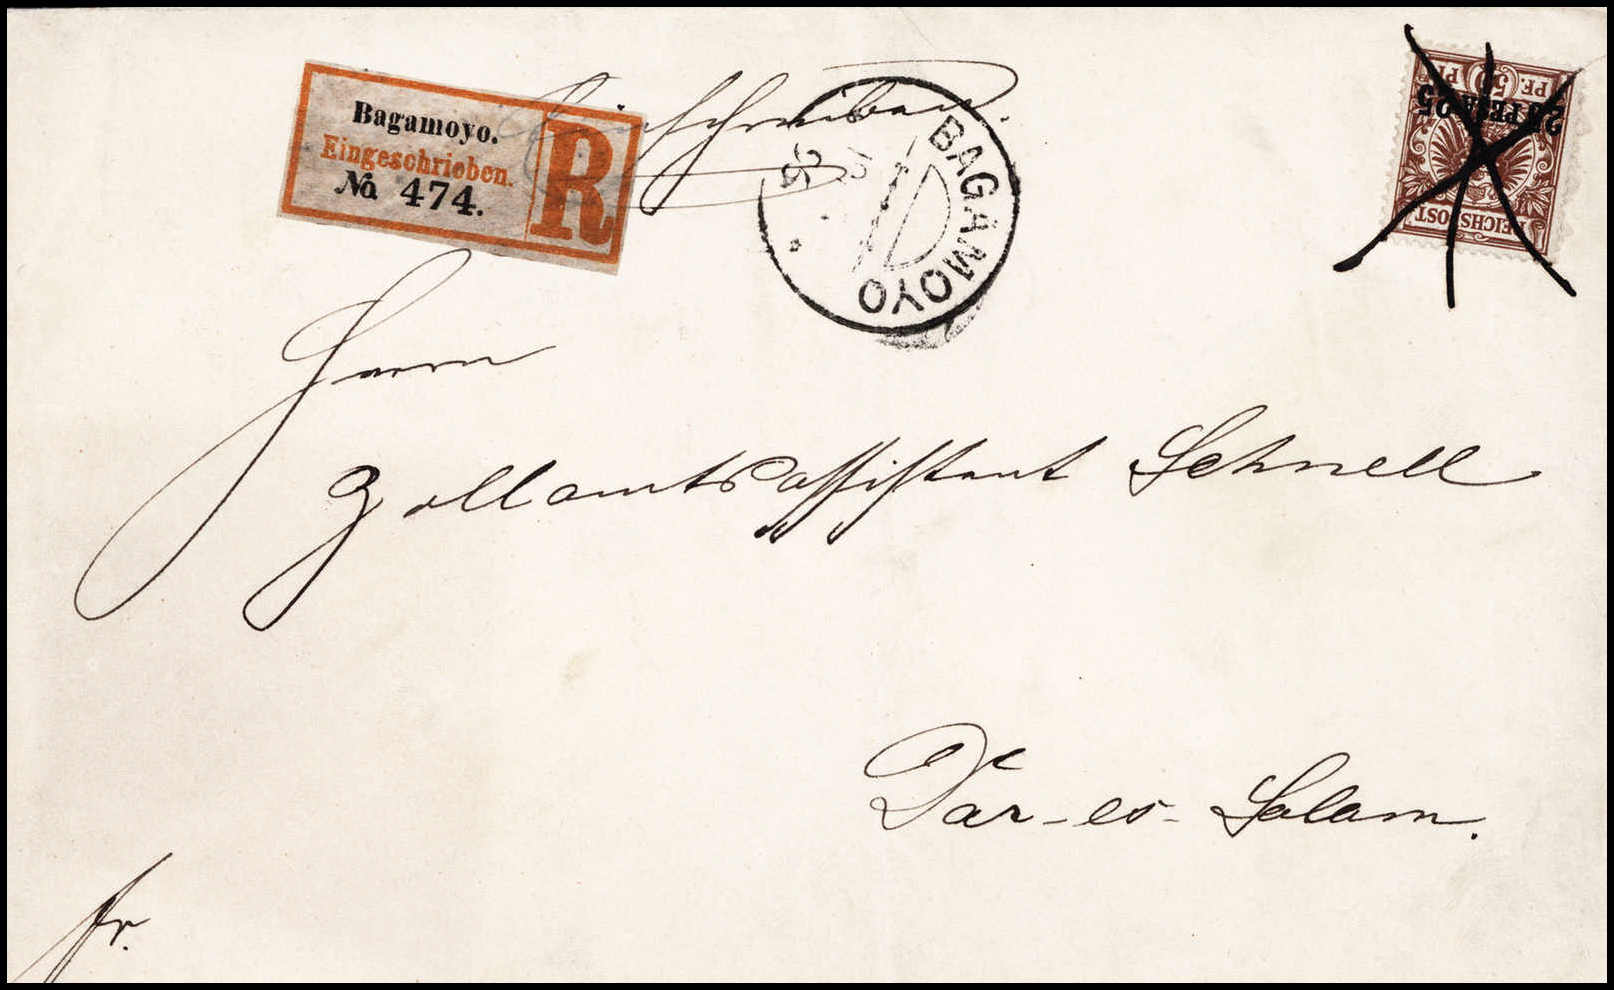 Einschreiben.
Bagamoyo.
Eingeschrieben.
No 474.
R
BAGAMOYO
PF. 50 PF.
25 PESA 25
REICHSPOST
Herrn
Zollamtsassistent Schnell
Dar-es-Salam.
fr.